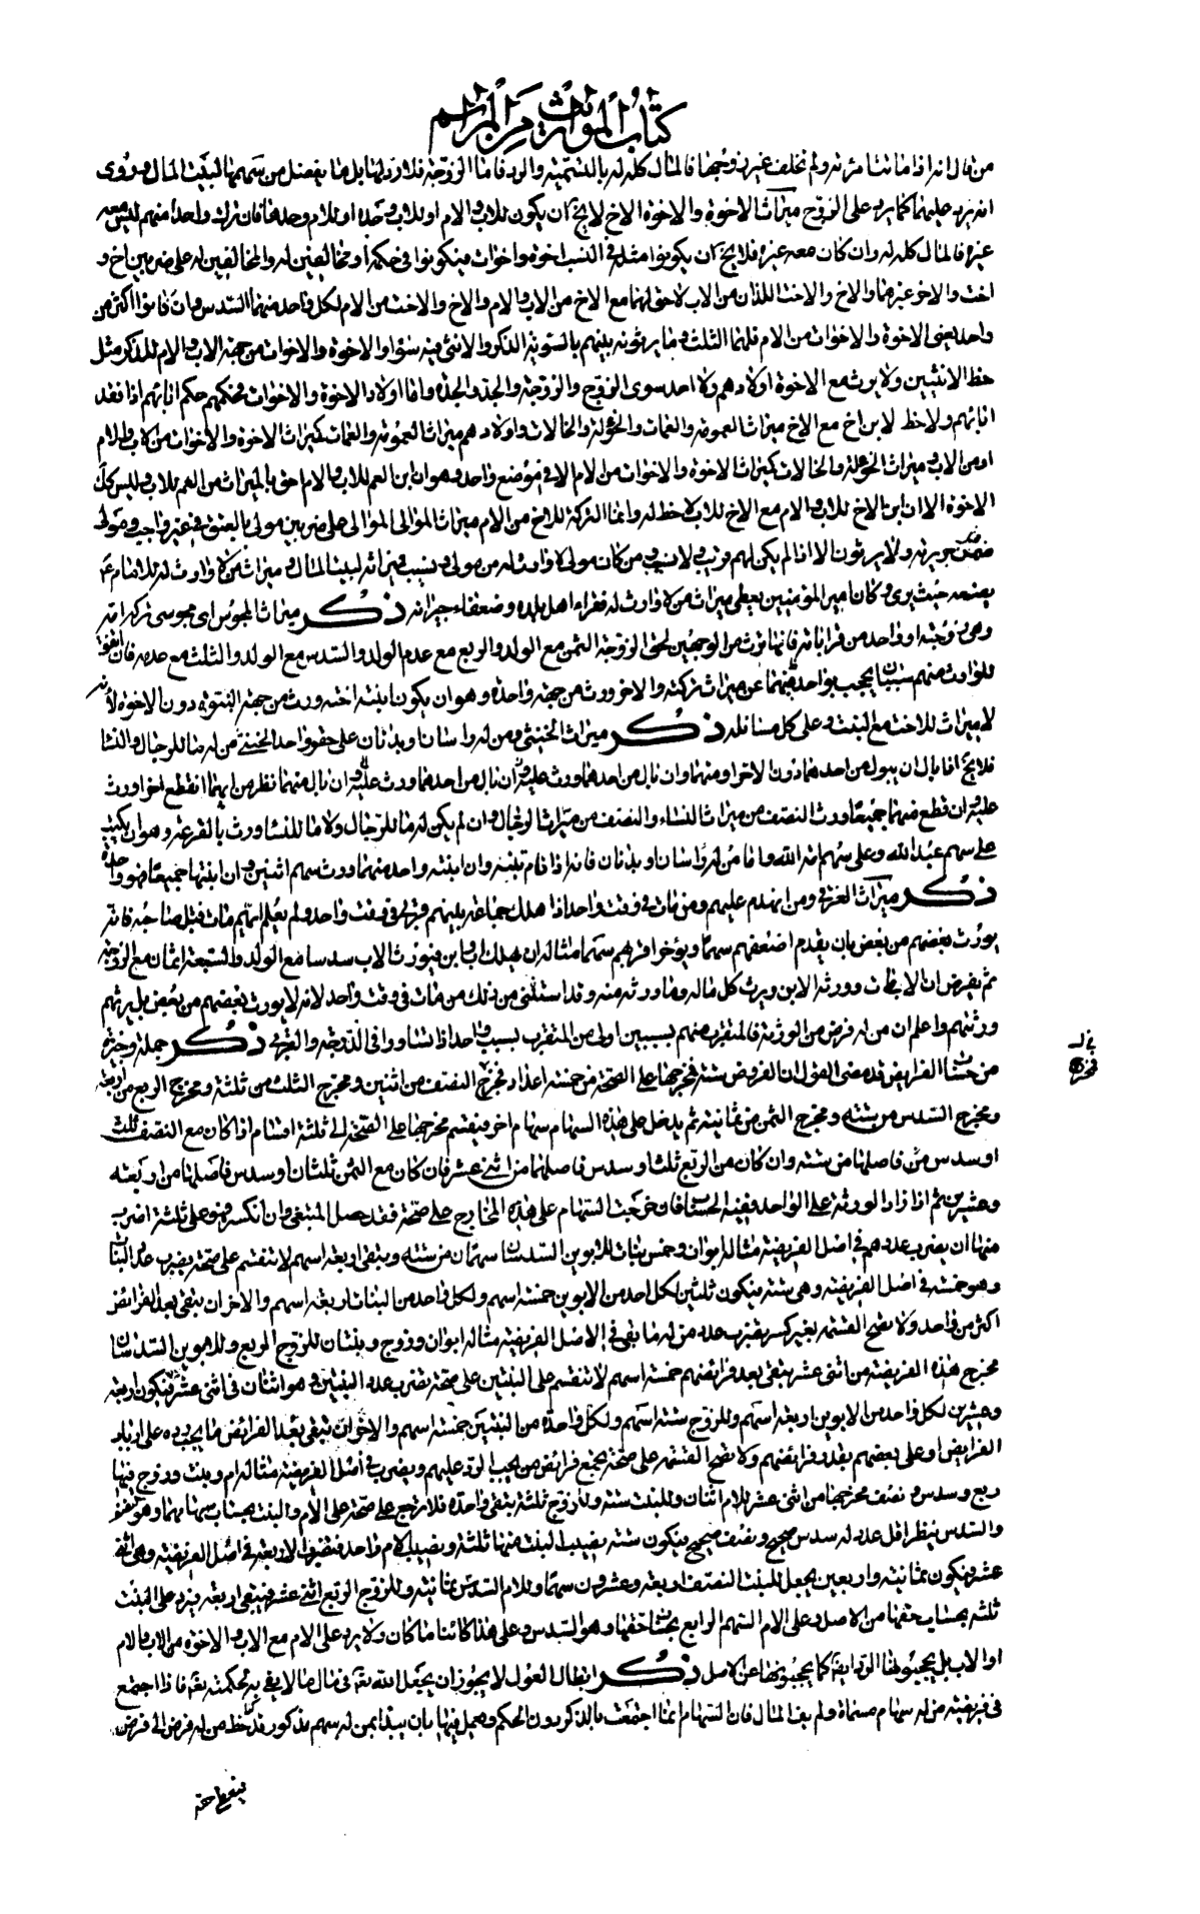 كتاب المواريث من المراسم
من قال انه اذا ماتت امراة ولم تخلف غير زوجها فالمال كله له بالتسمية والرد فاما الزوجة فلا رد لها بل ما يفضل من سهمها لبيت المال وروى
انه يرد عليها كما يرد على الزوج ميراث الاخوة والاخوة الاخ لا يخ ان يكون للاب والام او للاب وحده او للام وحدها فان ترك واحدا منهم ليس معه
غيره فالمال كله له وان كان معه غيره فلا يخ ان يكونوا مثله في النسب اخوة واخوات فيكونوا في حكمه او مخالفين له والمخالفين له على ضربين اخ و
اخت والاخر غيرهما والاخ والاخت اللذان من الاب لا حق لهما مع الاخ من الاب والام والاخ والاخت من الام لكل واحد منهما السدس وان كانوا اكثر من
واحد يعنى الاخوة والاخوات من الام فلهما الثلث وما يرثونه بينهم بالسوية الذكر والانثى فيه سواء والاخوة والاخوات من جهة الاب والام للذكر مثل
حظ الانثيين ولا يرث مع الاخوة اولادهم ولا احد سوى الزوج والزوجة والجد والجدة واما اولاد الاخوة والاخوات فحكمهم حكم ابائهم اذا فقد
ابائهم ولا حظ لابن اخ مع الاخ ميراث العمومة والعمات والخؤلة والخالات واولادهم ميراث العمومة والعمات كميراث الاخوة والاخوات من الاب والام
او من الاب وميراث الخؤلة والخالات كميراث الاخوة والاخوات من الام الا في موضع واحد وهو ان ابن العم للاب والام احق بالميراث من العم للاب وليس كك
الاخوة الا ان ابن الاخ للاب والام مع الاخ للاب لا حظ له وانما التركة للاخ من الام ميراث الموالى الموالى على ضربين مولى بالعتق في غير واجب ومولى
ضمن جريرته ولا يرثون الا اذا لم يكن لهم قريب ولا نسيب ومن كان مولى لا وارث له من مولى ونسيب فميراثه لبيت المال وميراث من لا وارث له للامام ع
يصنعه حيث يرى وكان امير المؤمنين يعطى ميراث من لا وارث له فقراء اهل بلده وضعفاء جيرانه ذكر ميراث المجوس اى مجوسى ترك امه
وهى زوجته او واحد من قراباته فانها تورث من الوجهين لحق الزوجة الثمن مع الولد والربع مع عدم الولد والسدس مع الولد والثلث مع عدمه فان اتفق
للوارث منهم سببان يحجب بواحد منهما عن ميراث تركته والاخر ورث من جهة واحدة وهو ان يكون ابنته اخته ورث من جهة البنتوة دون الاخوة لانه
لا ميراث للاخت مع البنت وعلى كل مسائله ذكر ميراث الخنثى ومن له راسان او بدنان على حقو واحد الخنثى من له ما للرجال والنساء
فلا يخ اما بال ان يبول من احدهما دون الاخر او منهما وان بال من احدهما ورث عليه وان بال منهما نظر من ايهما انقطع اخرا ورث
عليه وان قطع منهما جميعا ورث النصف من ميراث النساء والنصف من ميراث الرجال وان لم يكن له ما للرجال ولا ما للنساء ورث بالقرعة وهو ان يكتب
على سهم عبد الله وعلى سهم امة الله واما من له راسان او بدنان فانه اذا نام نبه وان انبته واحد منهما ورث سهم اثنين وان انبتها جميعا فهو واحد
ذكر ميراث الغرقى ومن انهدم عليهم ومن مات في وقت واحد اذا هلك جماعة بينهم قربى في وقت واحد ولم يعلم ايهم مات قبل صاحبه فانه
يورث بعضهم من بعض بان يقدم اضعفهم سهما ويؤخر اقربهم سهما مثاله ان هلك اب وابن فيورث الاب سدسا مع الولد والتسعة اثمان مع الزوجة
ثم يفرض ان الاب مات وورثه الابن ويرث كل ماله وما ورثه منه وقد استثنى من ذلك من مات في وقت واحد لانه لا يورث بعضهم من بعض بل يرثهم
ورثتهم واعلم ان من له فرض من الورثة فالمتقرب منهم بسببين اولى من المتقرب بسبب واحد اذا تساووا في الدرجة والقربى ذكر جملة وجيزة
من حساب الفرايض قد مضى القول ان الفروض ستة فمخرجها على الصحة من خمسة اعداد فمخرج النصف من اثنين ومخرج الثلث من ثلثة ومخرج الربع من اربعة
ومخرج السدس من ستة ومخرج الثمن من ثمانية ثم يدخل على هذه السهام سهام اخر فيقسم مخرجها على الصحة الى ثلثة اقسام اذا كان مع النصف ثلث
او سدس من فاصلها من ستة وان كان من الربع ثلث او سدس فاصلها من اثنى عشر فان كان مع الثمن ثلثان او سدس فاصلها من اربعة
وعشرين ثم اذا زاد الورثة على الواحد ففيه الحساب فان خرجت السهام على هذه المخارج على صحة فقد حصل المبتغى وان انكسر فهو على ثلثة اضرب
منها ان يضرب عددهم في اصل الفريضة مثاله ابوان وخمس بنات للابوين السدسان سهمان من ستة ويبقى اربعة اسهم لا تنقسم على صحة يضرب عدد البنات
وهو خمسة في اصل الفريضة وهى ستة فيكون ثلثين لكل احد من الابوين خمسة اسهم ولكل واحد من البنات اربعة اسهم والاخر ان يبقى بعد الفرايض
اكثر من واحد ولا يصح القسمة بغير كسر يضرب عدد من له ما بقى في اصل الفريضة مثاله ابوان وزوج وبنتان للزوج الربع وللابوين السدسان
مخرج هذه الفريضة من اثنى عشر يبقى بعد فرائضهم خمسة اسهم لا تنقسم على البنتين على صحة يضرب عدد البنتين وهو اثنان في اثنى عشر فيكون اربعة
وعشرين لكل واحد من الابوين اربعة اسهم وللزوج ستة اسهم ولكل واحدة من البنتين خمسة اسهم والاخر ان تبقى بعد الفرائض ما يجب رده على ارباب
الفرايض او على بعضهم بقدر فرائضهم ولا يصح القسمة على صحة يجمع فرائض من يجب الرد عليهم ويضرب في اصل الفريضة مثاله ام وبنت وزوج فيها
ربع وسدس ونصف مخرجها من اثنى عشر للام اثنان وللبنت ستة وللزوج ثلثة يبقى واحدة فلا يرجع على صحة على الام والبنت بحساب سهامهما وهو نصف
والسدس ينظر اقل عدد له سدس صحيح ونصف صحيح فيكون ستة نصيب البنت منها ثلثة ونصيب الام واحد فتضرب الاربعة في اصل الفريضة وهى اثنى
عشر فيكون ثمانية واربعين يجعل للبنت النصف اربعة وعشرون سهما وللام السدس ثمانية وللزوج الربع اثنى عشر فيبقى اربعة فيرد على البنت
ثلثه بحساب حقها من الاصل وعلى الام السهم الرابع بحساب حقها وهو السدس وعلى هذا كائنا ما كان ولا يرد على الام مع الاب والاخوة من الاب والام
او الاب بل يحجبونها الرد ايضا كما يحجبونها عن الاصل ذكر ابطال العول لا يجوز ان يجعل الله تعه في مال ما لا يفى به حكمته تعه فاذا اجتمع
في فريضة من له سهام مسماة ولم يف المال فان السهام انما اجتمعت بالذكر دون الحكم والعمل فيها بان يبتدا بمن له سهم مذكور قد حط من له فرض الى فرض